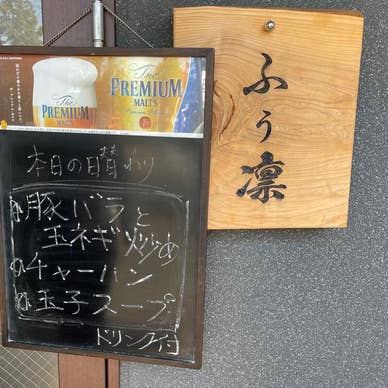 The
PREMIUM
MALT'S
The
PREMIUM
MALT'S
本日の日替わり
豚バラと
玉ネギ炒め
チャーハン
玉子スープ
ドリンク付
ふぅ凛